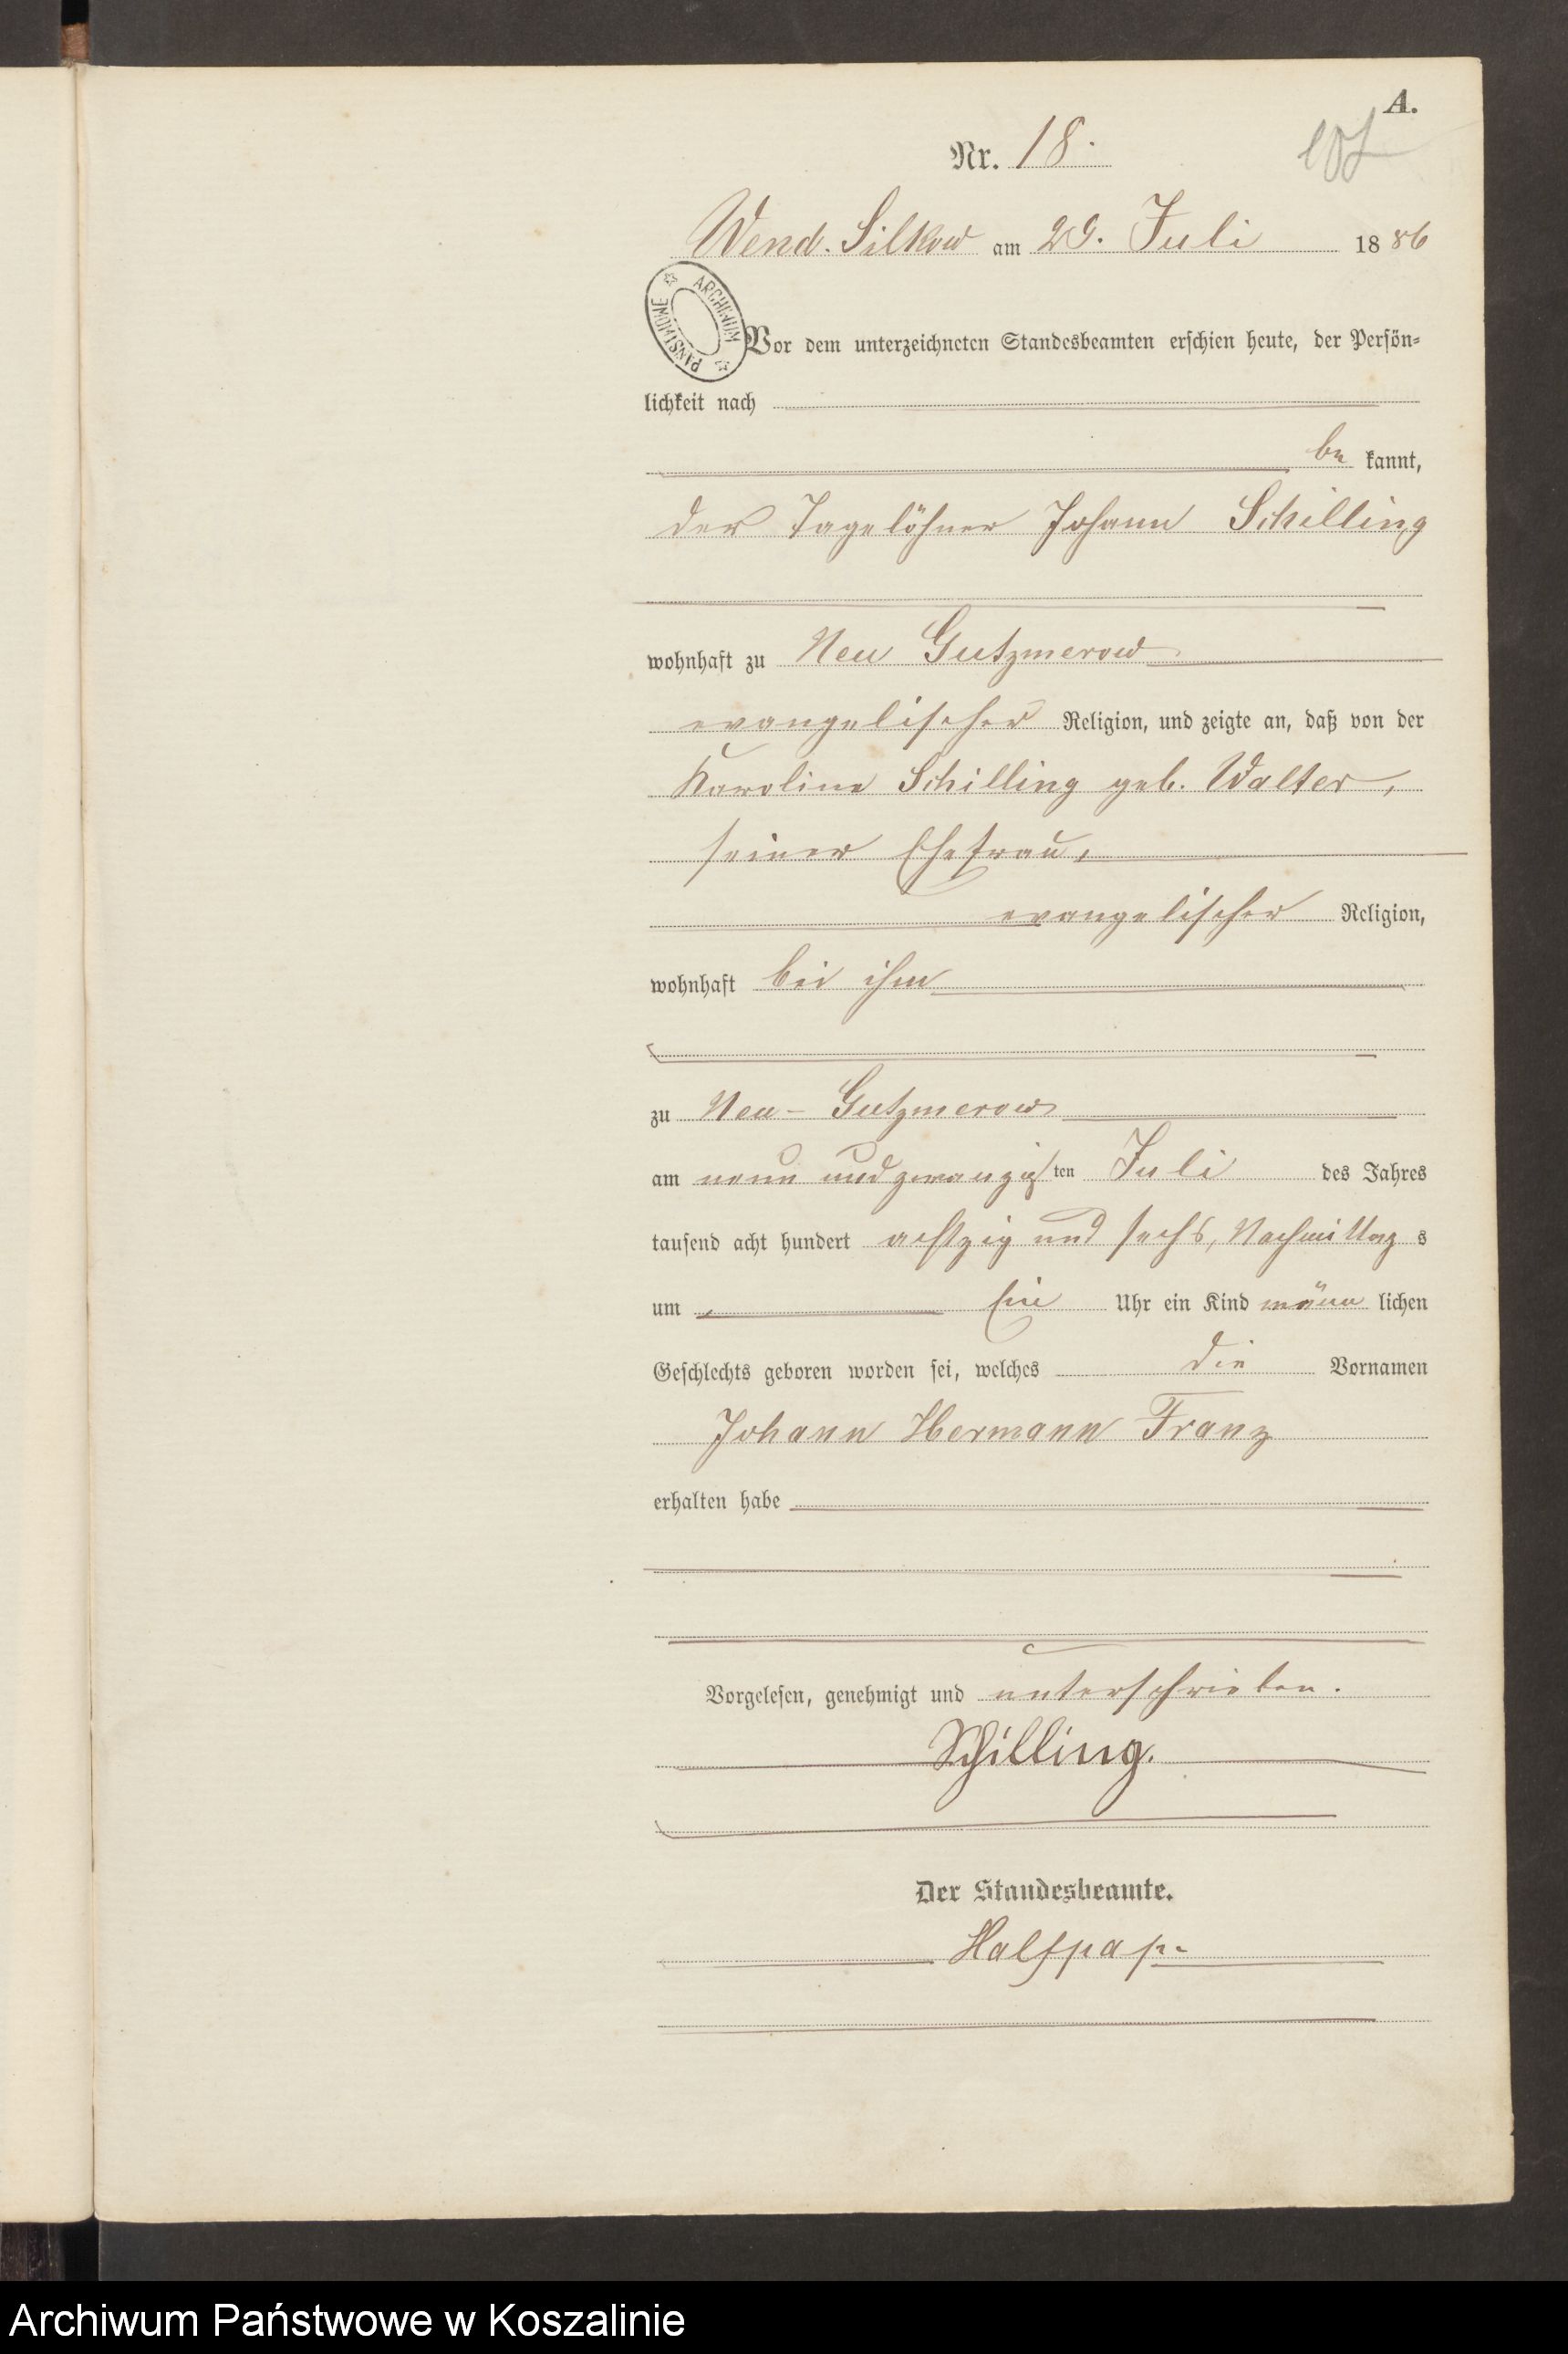 A.
Nr. 18.
Wend. Silkow am 29. Juli 1886
ARCHIWUM PAŃSTWOWE
Vor dem unterzeichneten Standesbeamten erschien heute, der Persön-
lichkeit nach
be kannt,
der Tagelöhner Johann Schilling
wohnhaft zu Neu Gutzmerow
evangelischer Religion, und zeigte an, daß von der
Karoline Schilling geb. Walter,
seiner Ehefrau,
evangelischer Religion,
wohnhaft bei ihm
zu Neu-Gutzmerow
am neun und zwanzigsten Juli des Jahres
tausend acht hundert achtzig und sechs, Nachmittags
um Ein Uhr ein Kind männlichen
Geschlechts geboren worden sei, welches die Vornamen
Johann Hermann Franz
erhalten habe
Vorgelesen, genehmigt und unterschrieben.
Schilling.
Der Standesbeamte.
Halfpap.
Archiwum Państwowe w Koszalinie